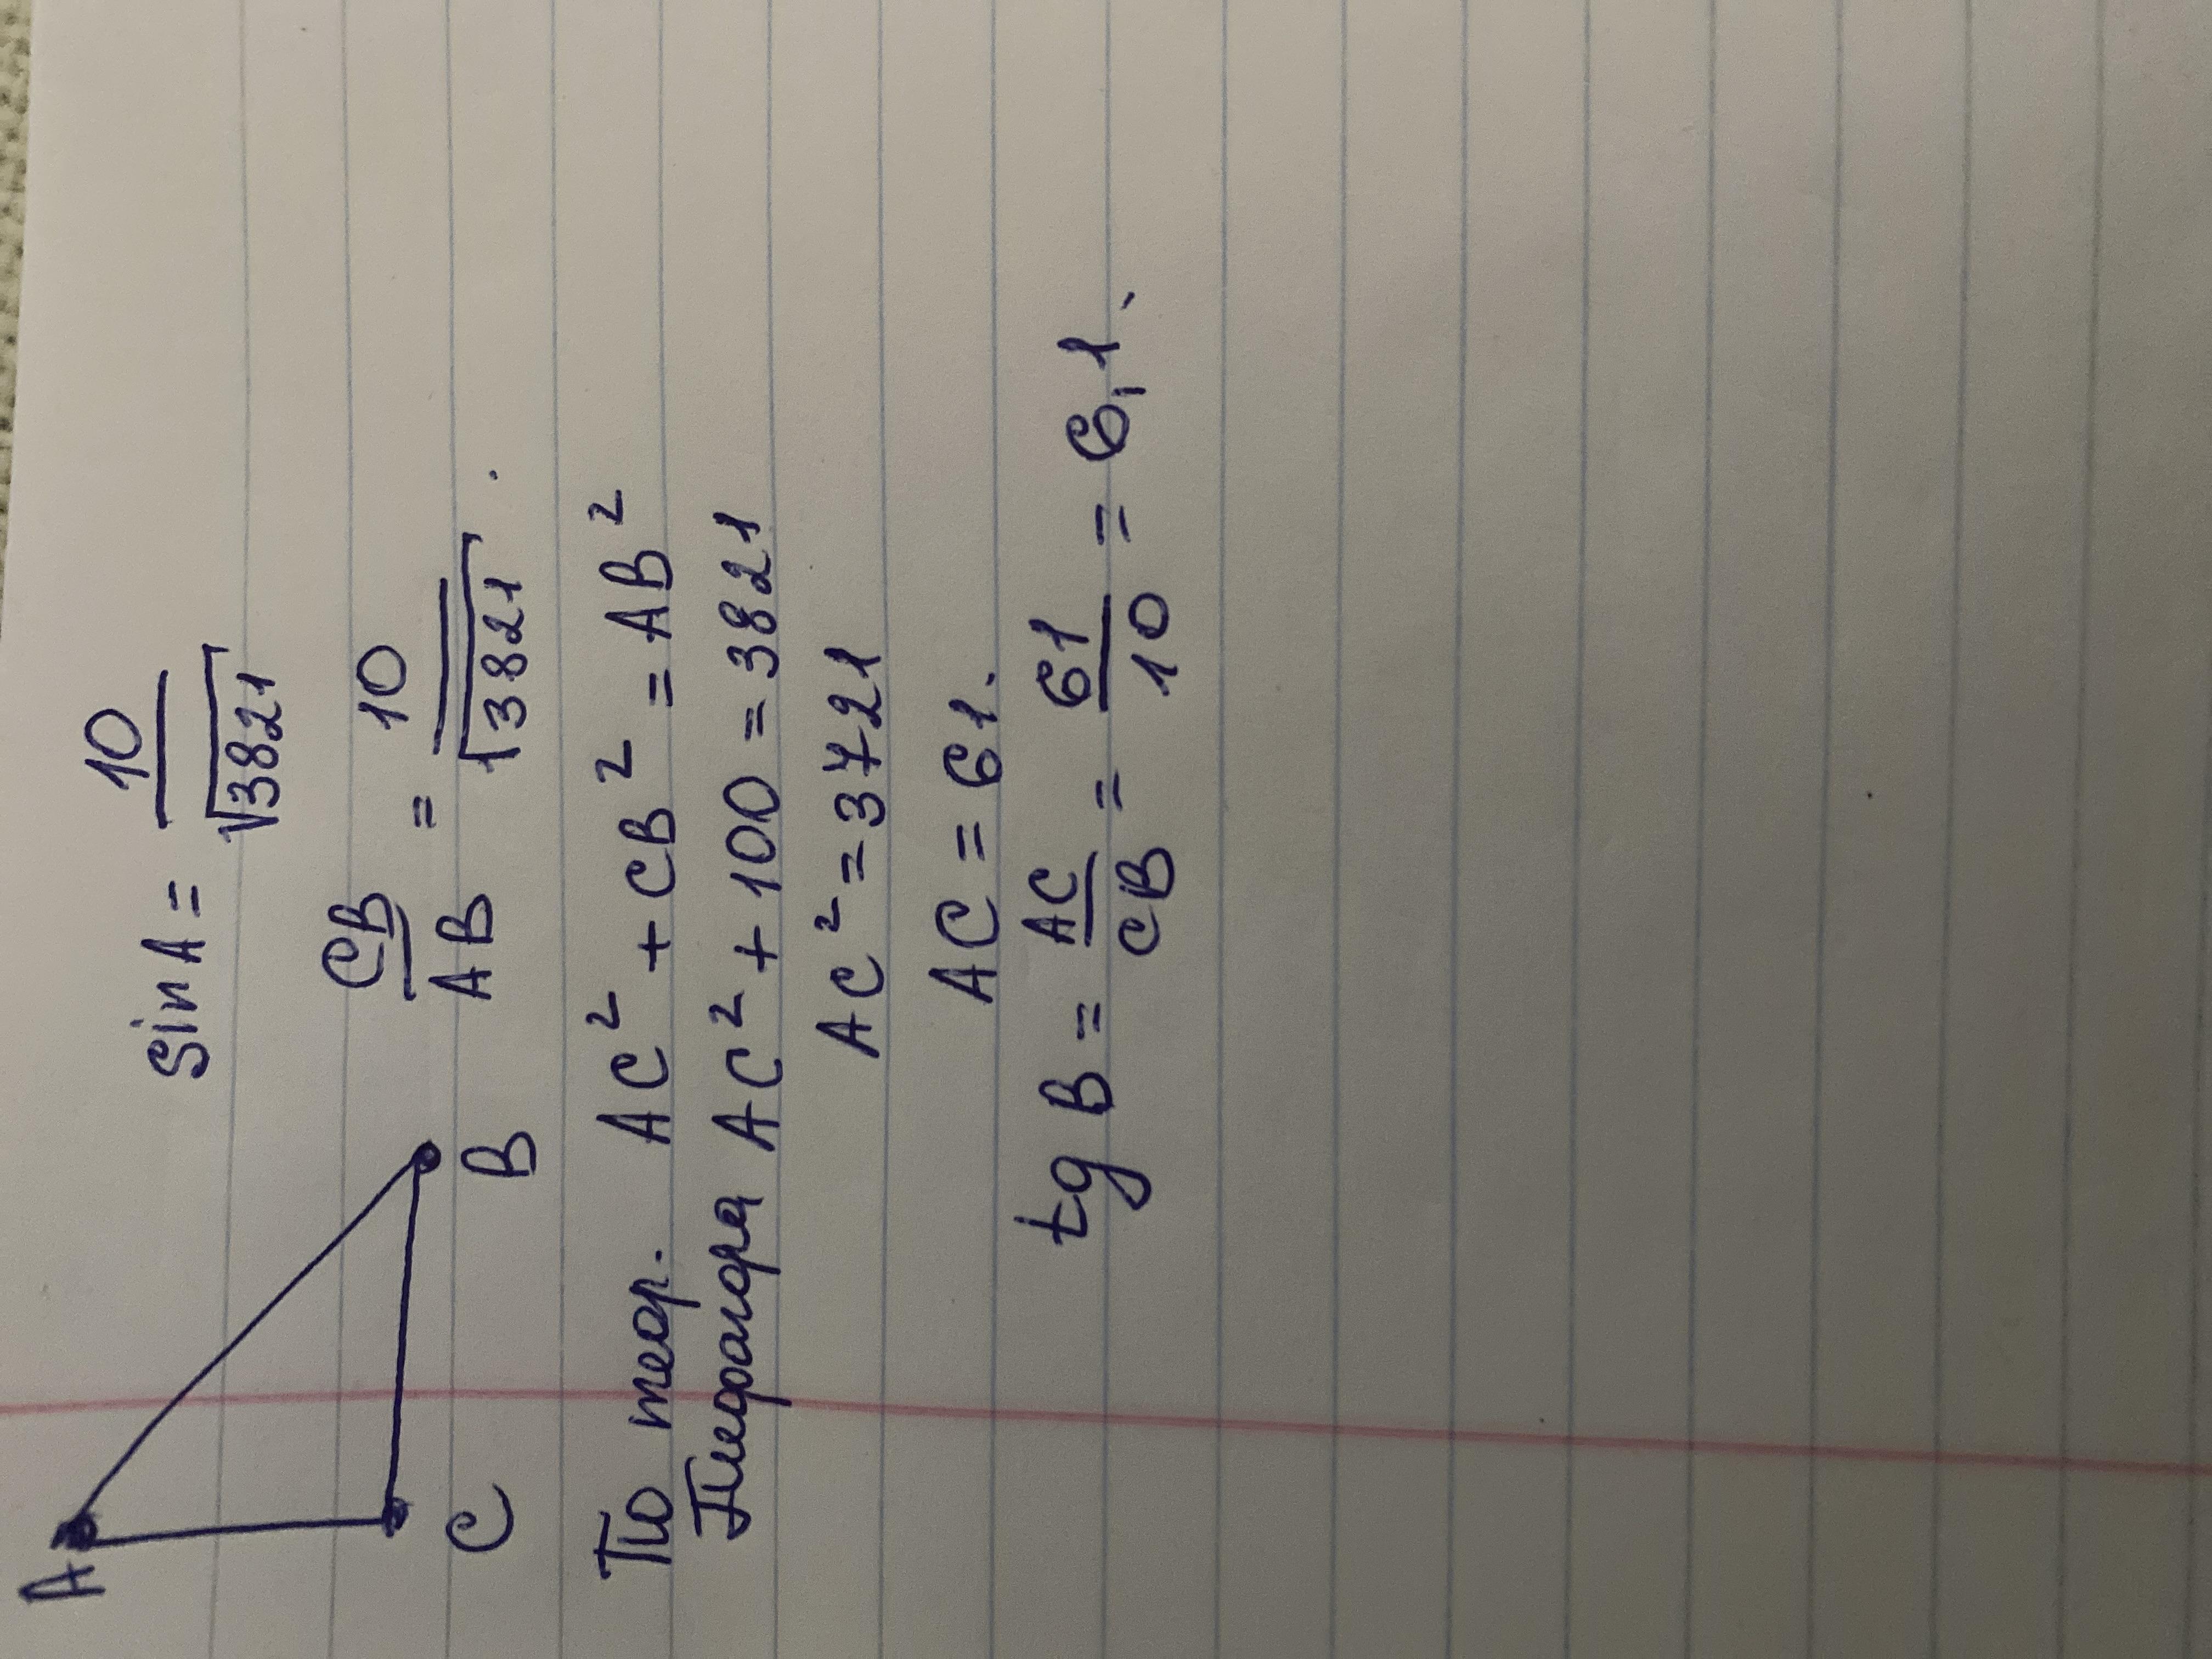 A
C
B
sin A = 10/√3821
CB/AB = 10/√3821.
По теор. AC² + CB² = AB²
Пифагора AC² + 100 = 3821
AC² = 3721
AC = 61.
tg B = AC/CB = 61/10 = 6,1.